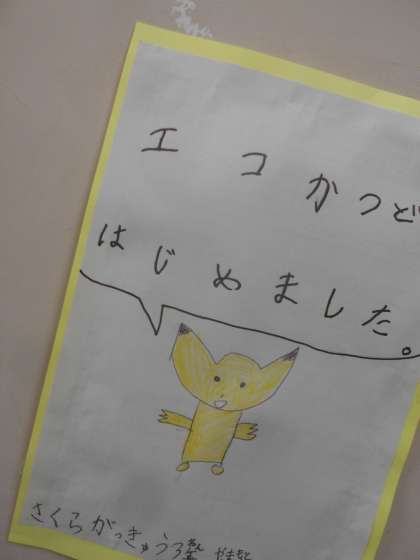 エコかつど
はじめました。
さくらがっきゅう3ねん